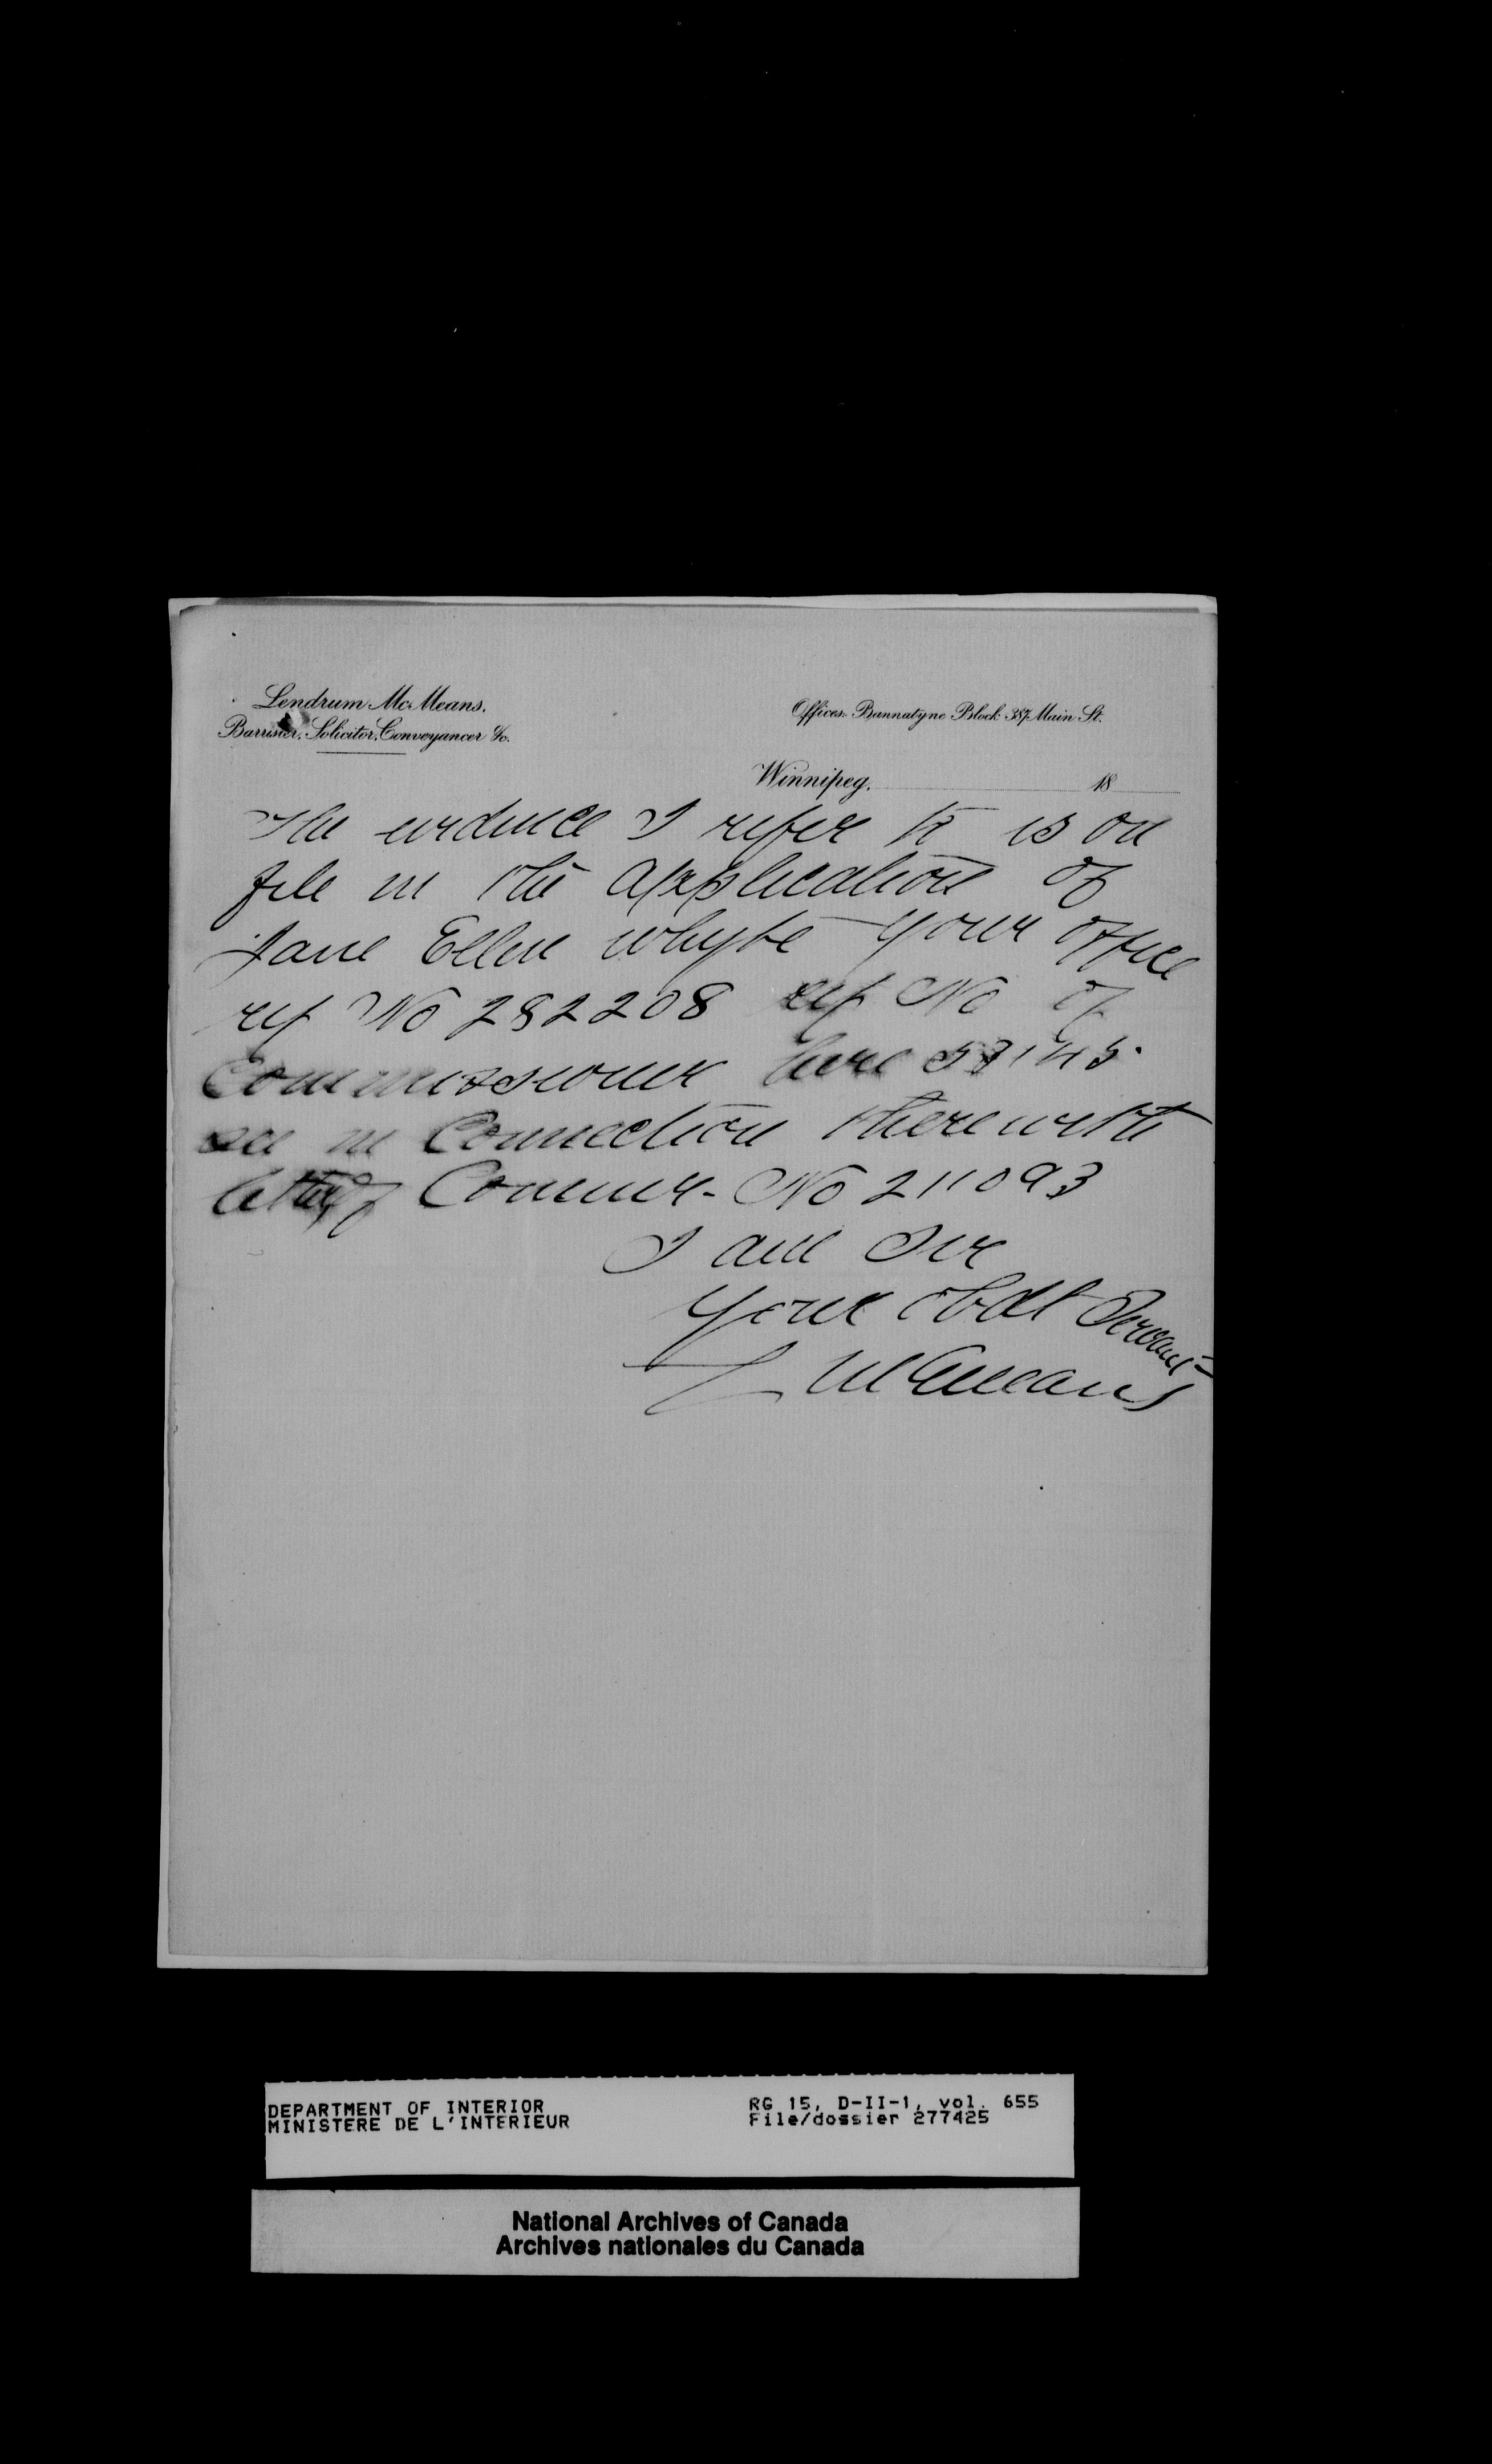 Lendrum McMeans.
Barrister, Solicitor, Conveyancer &c.
Offices: Bannatyne Block 387 Main St.
Winnipeg, 18
The evidence I refer to is on
file in the application of
Jane Ellen Whyte your office
ref No 282208 ref No of
Commissioner here 57145.
see in Connection therewith
letter of Commr- No 211093
I am Sir
your obdt Servant
L McMeans
DEPARTMENT OF INTERIOR
MINISTERE DE L'INTERIEUR
RG 15, D-II-1, vol. 655
File/dossier 277425
National Archives of Canada
Archives nationales du Canada